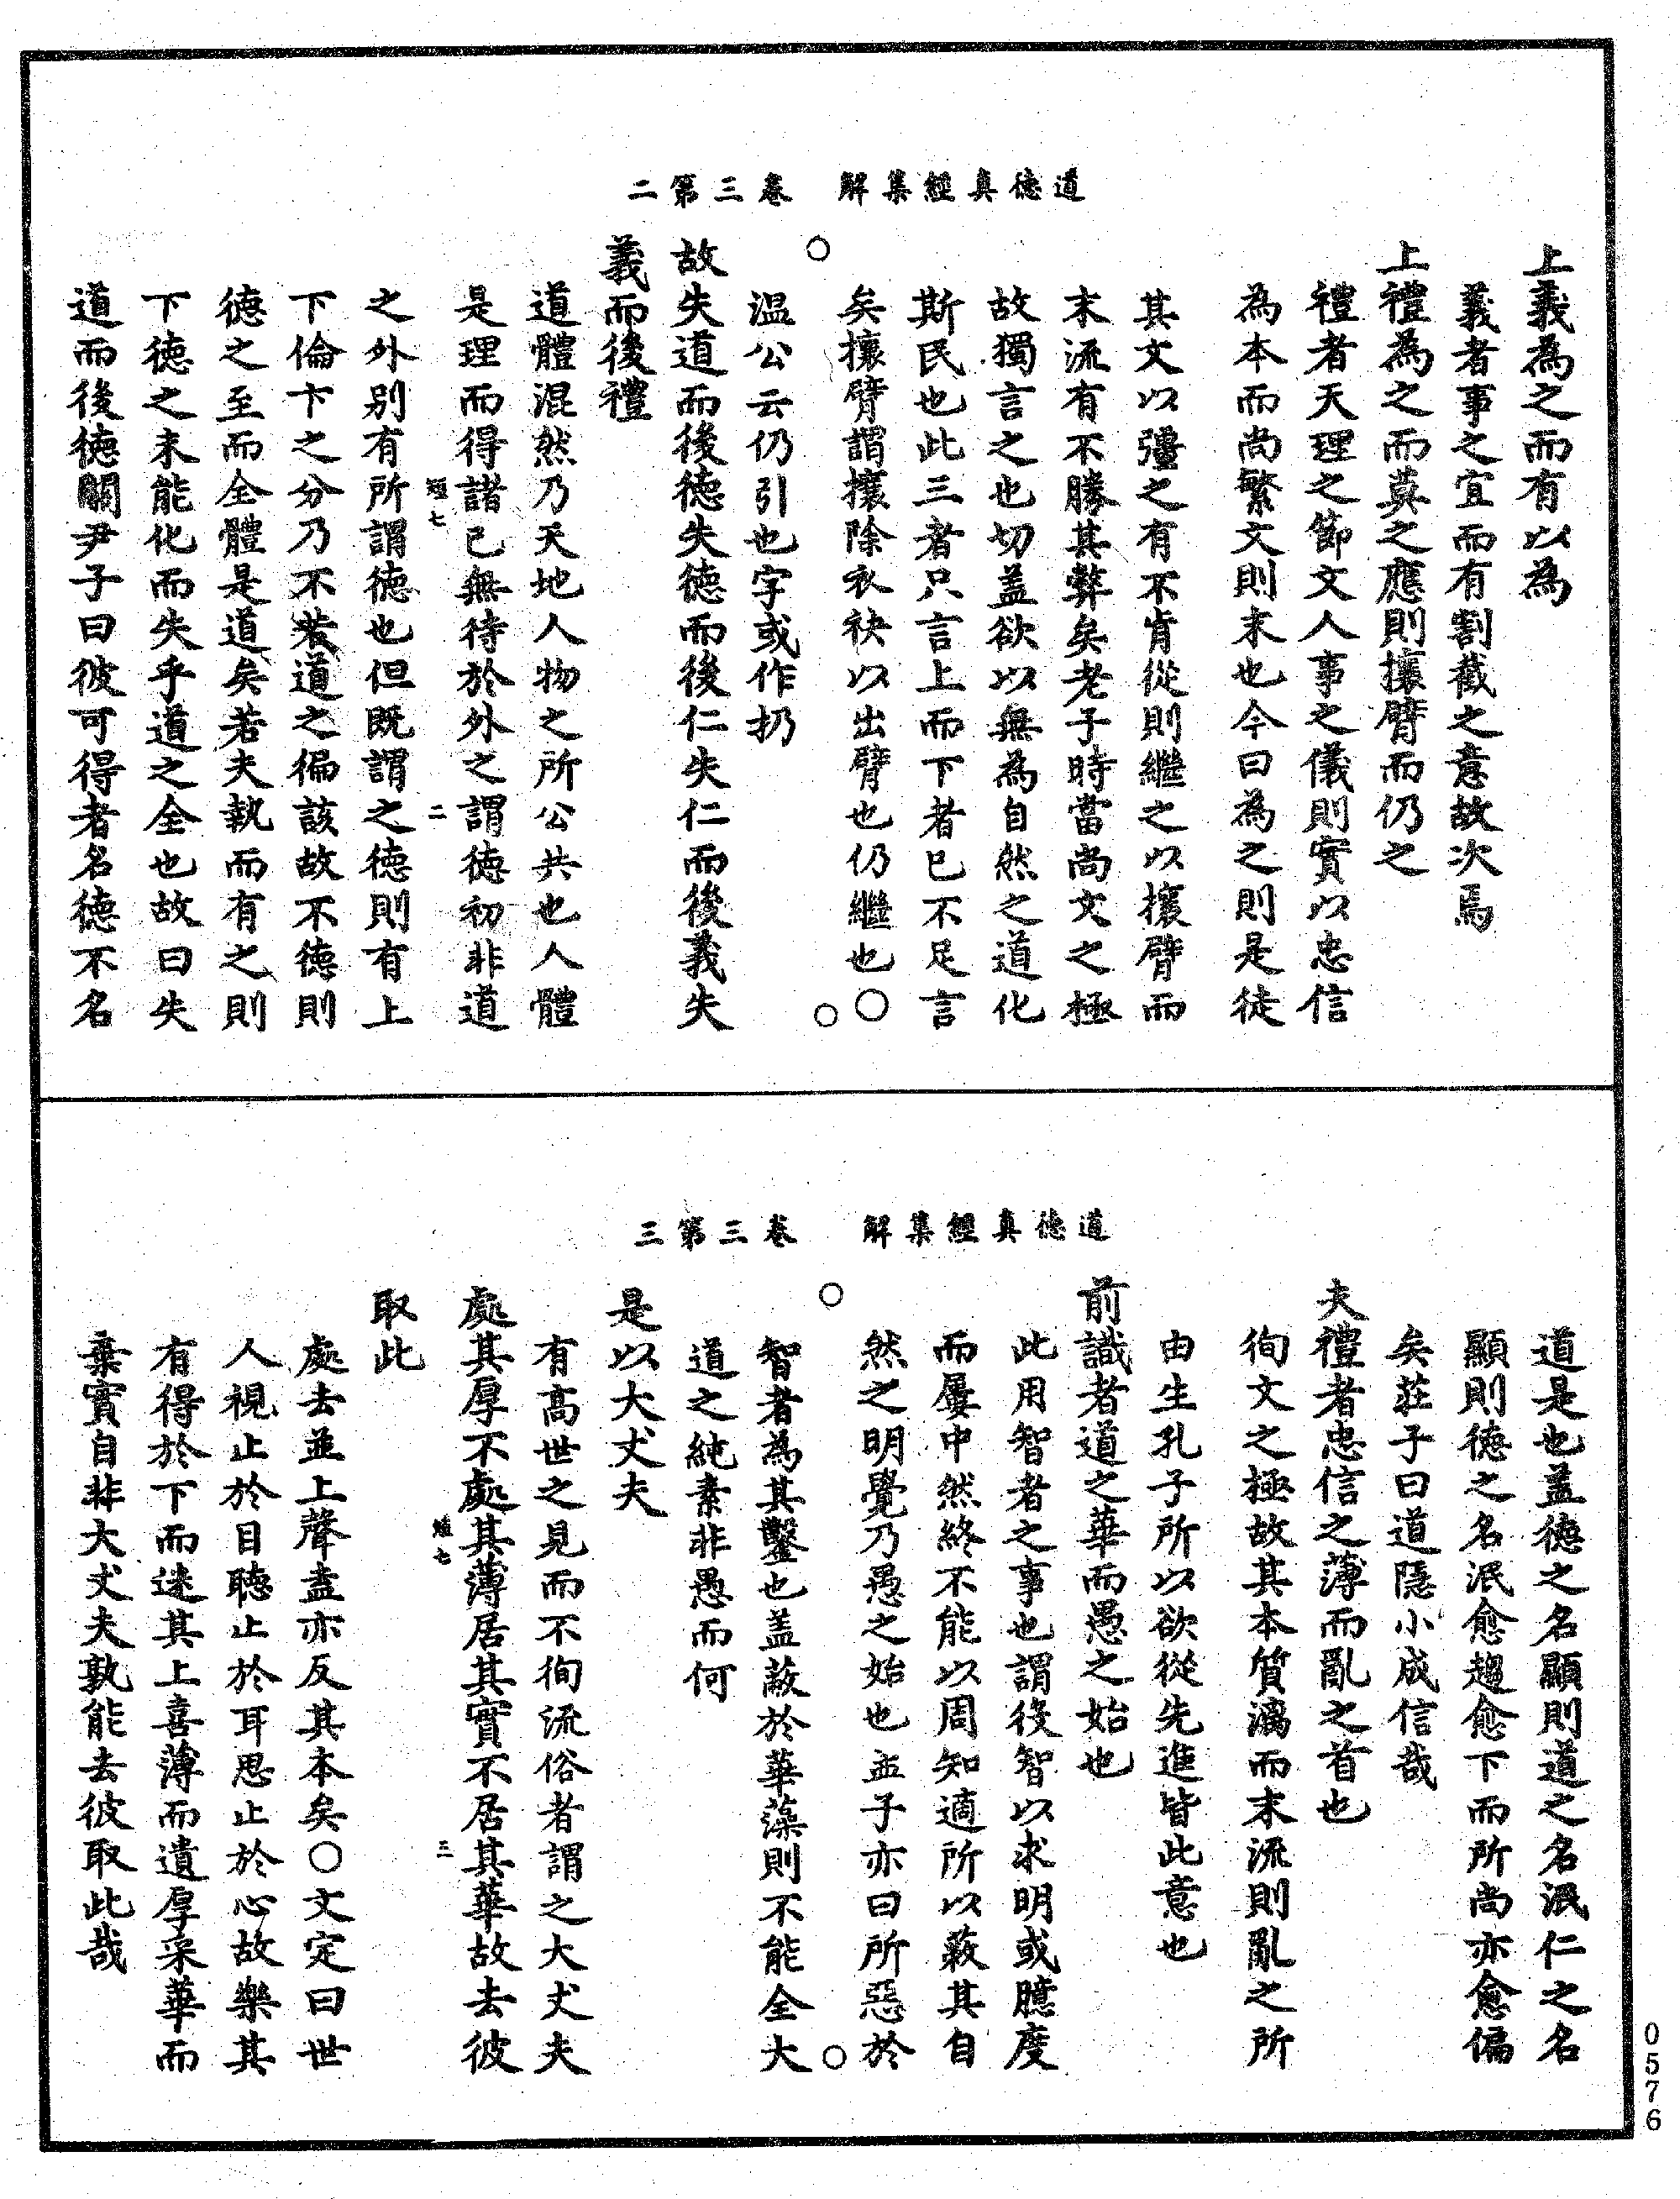 道德真經集解　卷三第二
上義為之而有以為
義者事之宜而有割截之意故次焉
上禮為之而莫之應則攘臂而仍之
禮者天理之節文人事之儀則實以忠信
為本而尚繁文則末也今曰為之則是徒
其文以彊之有不肯從則繼之以攘臂而
末流有不勝其弊矣老子時當尚文之極
故獨言之也切盖欲以無為自然之道化
斯民也此三者只言上而下者已不足言
矣攘臂謂攘除衣袂以出臂也仍繼也○
溫公云仍引也字或作扔
故失道而後德失德而後仁失仁而後義失
義而後禮
道體混然乃天地人物之所公共也人體
是理而得諸己無待於外之謂德初非道
之外別有所謂德也但既謂之德則有上
下倫卞之分乃不若道之徧該故不德則
德之至而全體是道矣若夫執而有之則
下德之未能化而失乎道之全也故曰失
道而後德關尹子曰彼可得者名德不名
道德真經集解　卷三第三
道是也盖德之名顯則道之名泯仁之名
顯則德之名泯愈趨愈下而所尚亦愈偏
矣莊子曰道隱小成信哉
夫禮者忠信之薄而亂之首也
徇文之極故其本質漓而末流則亂之所
由生孔子所以欲從先進皆此意也
前識者道之華而愚之始也
此用智者之事也謂役智以求明或臆度
而屢中然終不能以周知適所以蔽其自
然之明覺乃愚之始也孟子亦曰所惡於
智者為其鑿也盖蔽於華藻則不能全大
道之純素非愚而何
是以大丈夫
有高世之見而不徇流俗者謂之大丈夫
處其厚不處其薄居其實不居其華故去彼
取此
處去並上聲盍亦反其本矣○文定曰世
人視止於目聽止於耳思止於心故樂其
有得於下而迷其上喜薄而遺厚采華而
棄實自非大丈夫孰能去彼取此哉
0576